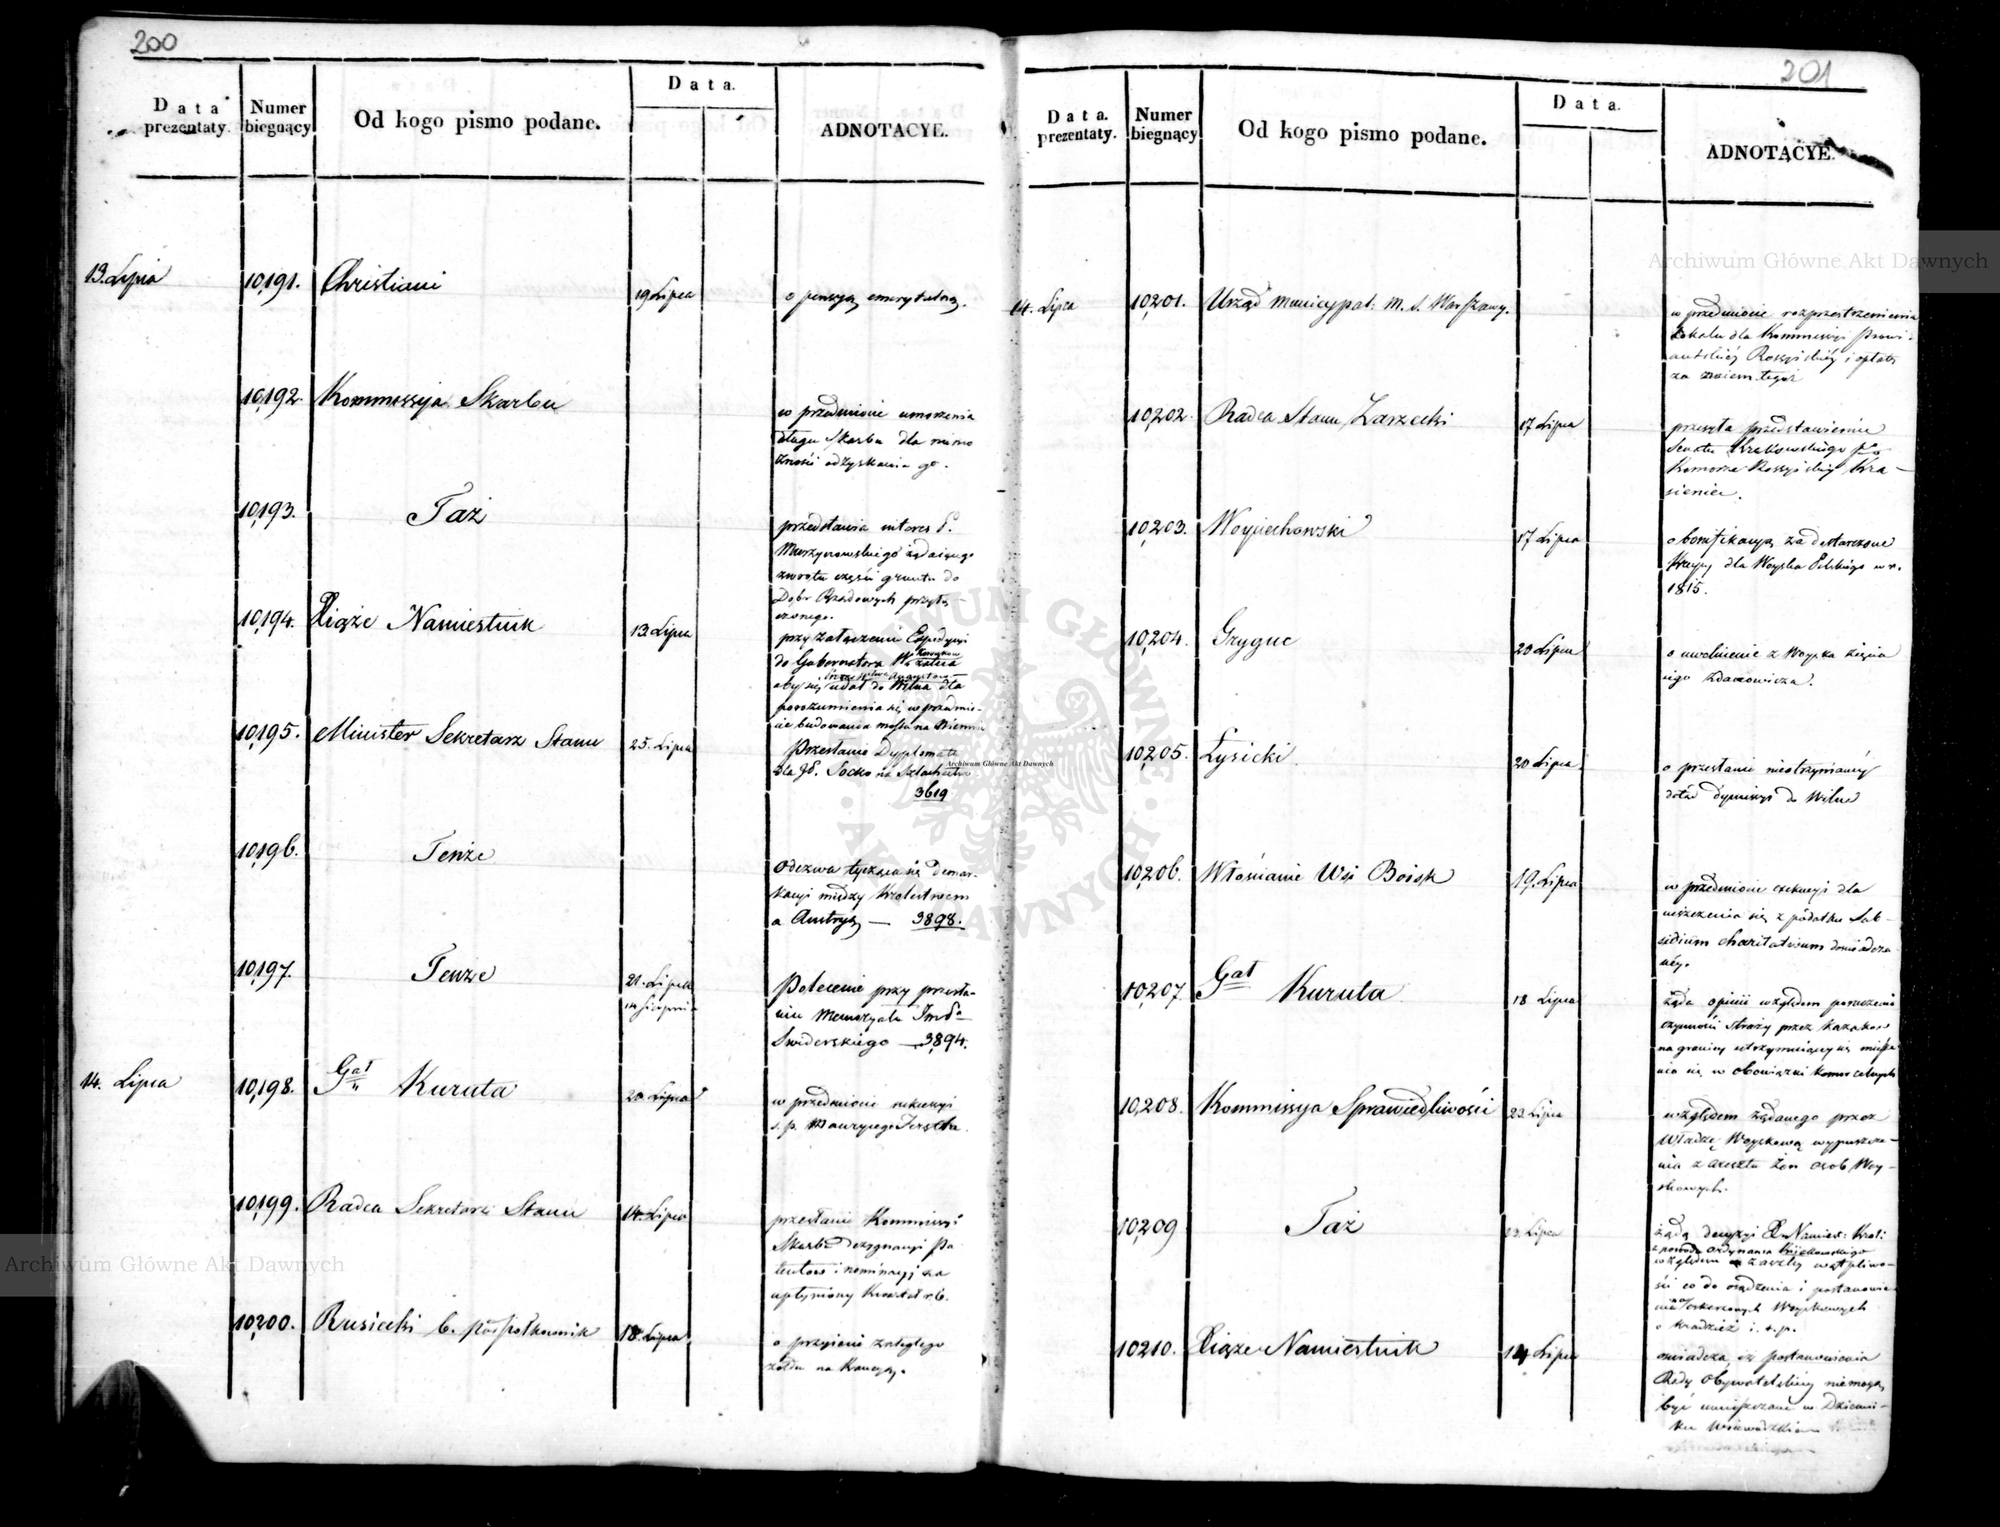 200
Data prezentaty.
Numer biegnący
Od kogo pismo podane.
Data.
ADNOTACYE.
13. Lipca
10,191.
Christiani
19 Lipca
o pensyą emerytalną.
10,192.
Kommissyja Skarbu
w przedmiocie umorzenia
długu Skarbu dla niemo
żności odzyskania go.
10,193.
Taż
przedstawia interes P.
Murzynowskiego żądaiącego
zwrotu części gruntu do
Dóbr Rządowych przyłą-
czonego.
10,194.
Xiąże Namiestnik
13. Lipca
przy załączeniu Expedycyi
do Gubernatora
aby się udał do Wilna dla
porozumienia się w przedmio-
cie budowania mostu na Niemnie
10,195.
Minister Sekretarz Stanu
25. Lipca
Przesłanie Dyplomatu
dla na Szlachectwo
3619
10,196.
Tenże
Odezwa tycząca się demar-
kacyi między Królestwem
a Austryą — 3898.
10,197.
Tenże
21. Lipca
14 Sierpnia
Polecenie przy przesła-
niu Memoryału
Swiderskiego — 3894.
14. Lipca
10,198.
Gał Kuruta
20 Lipca
w przedmiocie sukcessyi
ś. p. Maurycego
10,199.
Radca Sekretarz Stanu
14. Lipca
przesłanie Kommissyi
Skarbu dezygnacyi Pa
tentów i nominacyi za
upłyniony Kwartał r. b.
10,200.
Rusiecki b. Podpółkownik
18. Lipca
o przyjęcie zaległego
żołdu na Kaucyą.
201
Data. prezentaty.
Numer biegnący
Od kogo pismo podane.
Data.
ADNOTACYE.
14. Lipca
10,201.
Urząd Municypal: M. S. Warszawy.
w przedmiocie rozprzestrzenienia
Lokalu dla Kommissyi Prowi-
antskiéy Rossyiskiéy i opłaty
za najem tegoż
10,202.
Radca Stanu Zarzecki
17 Lipca
przesyła przedstawienie
Senatu Krakowskiego
Komorze Rossyiskiey Kra-
sieniec.
10,203.
Woyciechowski
17 Lipca
o bonifikacyą za dostarczone
dla Woyska Polskiego w r.
1815.
10,204.
Grzyguc
20 Lipca
o uwolnienie z Woyska zięcia
iego Zdanowicza.
10,205.
Łysicki.
20 Lipca
o przesłanie nieotrzymaney
dotąd dymissyi do Wilna
10,206.
Włościanie Wsi Boisk
19. Lipca
w przedmiocie exekucyi dla
uiszczenia się z podatku Sub-
sidium Charitativum doświadcza
néy.
10,207
Gał Kuruta
18 Lipca
żąda opinii względem poruczenia
czynności straży przez kozaków
na granicy utrzymuiącey się
nia się w obowiązki Komor celnych
10,208.
Kommissya Sprawiedliwości
23 Lipca
względem żądanego przez
Władzę Woyskową wypuszcze-
nia z aresztu żon osob Woy-
skowych.
10,209
Taż
23. Lipca
żąda decyzyi X. Namiest: Król:
z powodu
względem zaszłey wątpliwo-
ści co do osądzenia i postanowie
nia oskarżonych Woyskowych
o kradzież i. t. p.
10210.
Xiąże Namiestnik
14 Lipca
oswiadcza, iż postanowienia
Rady Obywatelskiey niemogą
być umieszczane w Dzienni-
ku Woiewódzkim
Archiwum Główne Akt Dawnych
Archiwum Główne Akt Dawnych
Archiwum Główne Akt Dawnych
ARCHIWUM GŁÓWNE · AKT DAWNYCH ·